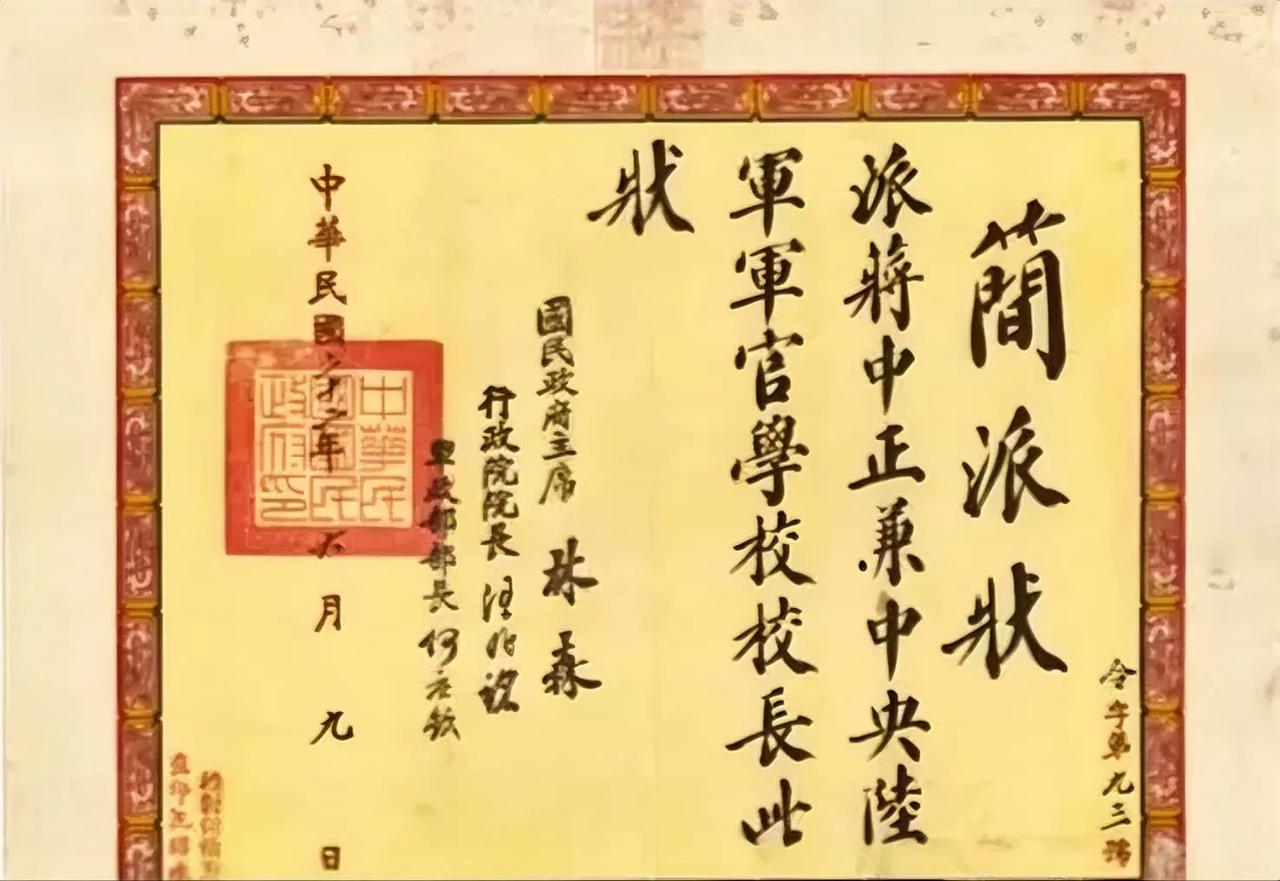 簡派狀
派蔣中正兼中央陸
軍軍官學校校長此
狀
國民政府主席 林森
行政院院長 汪兆銘
軍政部部長 何應欽
中華民國二十二年六月九日
令字第九三號
中華民國國民政府印